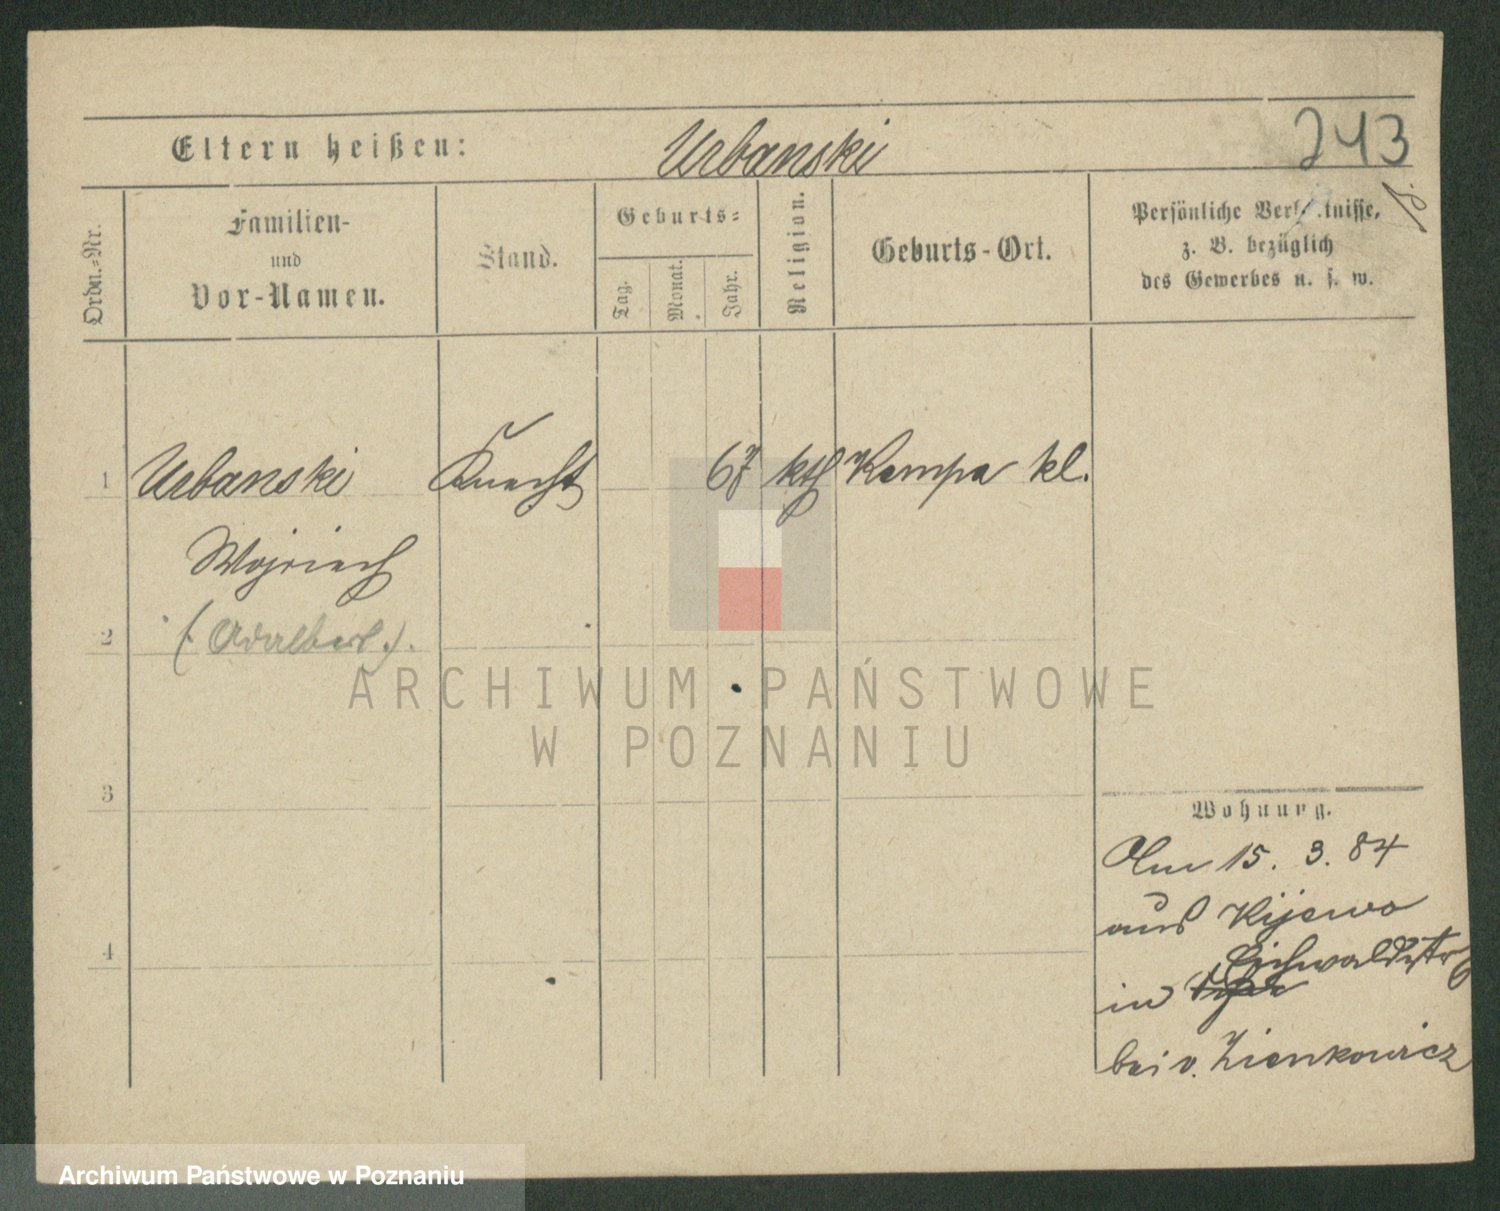 243
Eltern heißen: Urbanski
Ordn.-Nr.
Familien-
und
Vor-Namen.
Stand.
Geburts-
Tag.
Monat.
Jahr.
Religion.
Geburts-Ort.
Persönliche Verhältnisse,
z. B. bezüglich
des Gewerbes u. s. w.
1 Urbanski Knecht 67 kth Kempa kl.
Wojciech
2 (Adalbert).
3
4
Wohnung.
Am 15. 3. 84
aus Kijewo
Eichwaldstr
in
bei v. Zienkowicz
ARCHIWUM PAŃSTWOWE
W POZNANIU
Archiwum Państwowe w Poznaniu